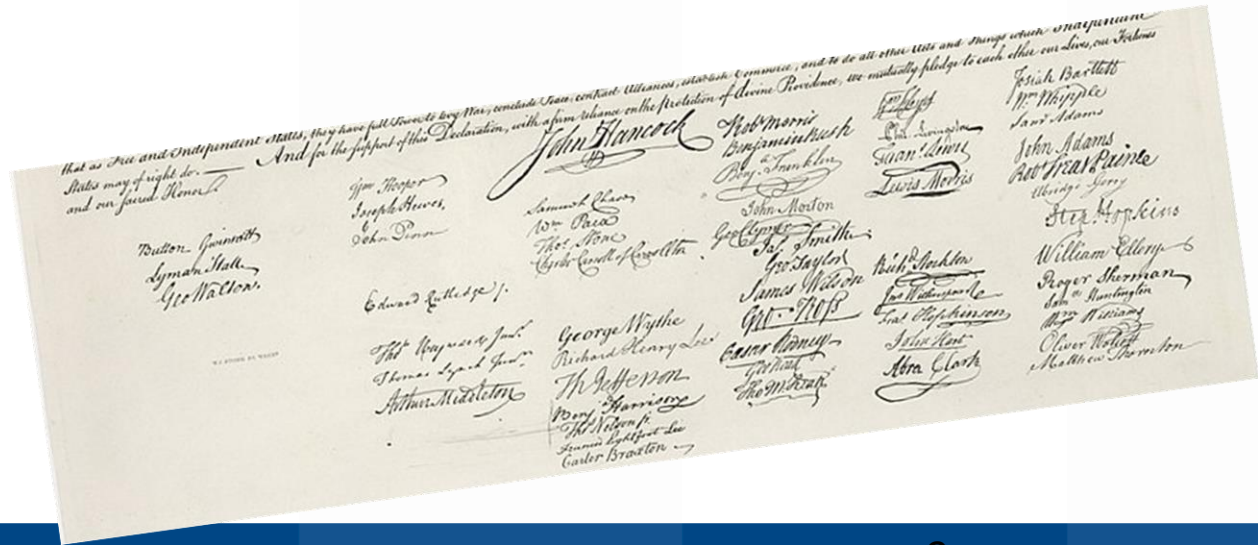 that as Free and Independent States, they have full Power to levy War, conclude Peace, contract Alliances, establish Commerce, and to do all other Acts and Things which Independent
States may of right do. — And for the support of this Declaration, with a firm reliance on the Protection of divine Providence, we mutually pledge to each other our Lives, our Fortunes
and our sacred Honor.
John Hancock
Button Gwinnett
Lyman Hall
Geo Walton.
Wm Hooper
Joseph Hewes,
John Penn
Edward Rutledge /.
Thos Heyward Junr.
Thomas Lynch Junr.
Arthur Middleton
Samuel Chase
Wm Paca
Thos Stone
Charles Carroll of Carrollton
George Wythe
Richard Henry Lee
Th Jefferson
Benja Harrison
Thos Nelson jr.
Francis Lightfoot Lee
Carter Braxton
Robt Morris
Benjamin Rush
Benja Franklin
John Morton
Geo Clymer
Jas. Smith
Geo. Taylor
James Wilson
Geo. Ross
Caesar Rodney
Geo Read
Tho M:Kean
Phil. Livingston
Frans. Lewis
Lewis Morris
Richd. Stockton
Jno Witherspoon
Fras. Hopkinson
John Hart
Abra Clark
Josiah Bartlett
Wm Whipple
Saml Adams
John Adams
Robt Treat Paine
Elbridge Gerry
Step Hopkins
William Ellery
Roger Sherman
Saml Huntington
Wm Williams
Oliver Wolcott
Matthew Thornton